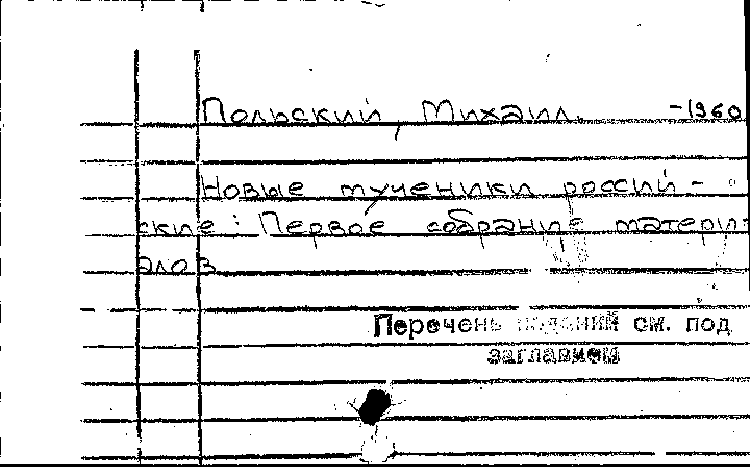 Польский, Михаил. -1960
Новые мученики россий-
ские: Первое собрание матери-
алов
Перечень изданий см. под
заглавием